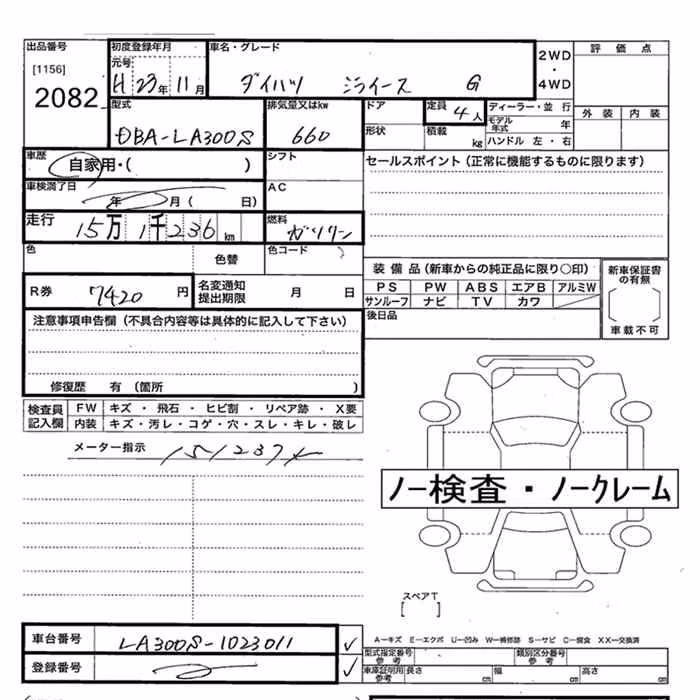 出品番号 初度登録年月 車名・グレード 2WD・4WD 評価点
[1156] 元号
2082 H 23年 11月 ダイハツ ミライース G
型式 排気量又はkw ドア 定員 4人 ディーラー・並行 外装 内装
DBA-LA300S 660 形状 積載 kg モデル年式 年
ハンドル 左・右
車歴 自家用・( ) シフト セールスポイント(正常に機能するものに限ります)
車検満了日 年 月( 日) AC
走行 15万1千236km 燃料 ガソリン
色 色替 色コード
装備品(新車からの純正品に限り○印) 新車保証書の有無
R券 7420円 名変通知提出期限 月 日 PS PW ABS エアB アルミW
サンルーフ ナビ TV カワ
注意事項申告欄(不具合内容等は具体的に記入して下さい) 後日品 車載不可
修復歴 有(箇所 )
検査員記入欄 FW キズ・飛石・ヒビ割・リペア跡・X要
内装 キズ・汚レ・コゲ・穴・スレ・キレ・破レ
メーター指示 151237
ノー検査・ノークレーム
スペアT
[ ]
車台番号 LA300S-1023011 A-キズ E-エクボ U-凹み W-補修跡 S-サビ C-腐食 XX-交換済
型式指定番号 参考 類別区分番号 参考
登録番号 車庫証明用 参考 長さ cm 幅 cm 高さ cm